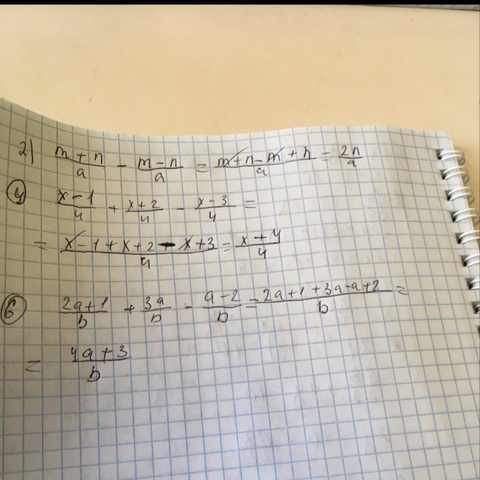 2) (m+n)/a - (m-n)/a = (m+n-m+n)/a = 2n/a
4) (x-1)/4 + (x+2)/4 - (x-3)/4 =
= (x-1+x+2-x+3)/4 = (x+4)/4
6) (2a+1)/b + 3a/b - (a-2)/b = (2a+1+3a-a+2)/b =
= (4a+3)/b